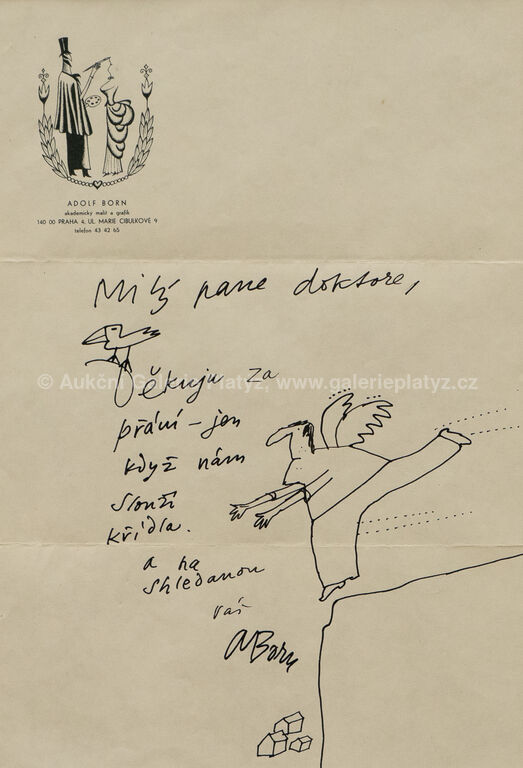 ADOLF BORN
akademický malíř a grafik
140 00 PRAHA 4, UL. MARIE CIBULKOVÉ 9
telefon 43 42 65
Milý pane doktore,
Děkuju za
© Aukční Galerie Platýz, www.galerieplatyz.cz
přání – jen
když nám
slouží
křídla.
a na
shledanou
váš
ABorn